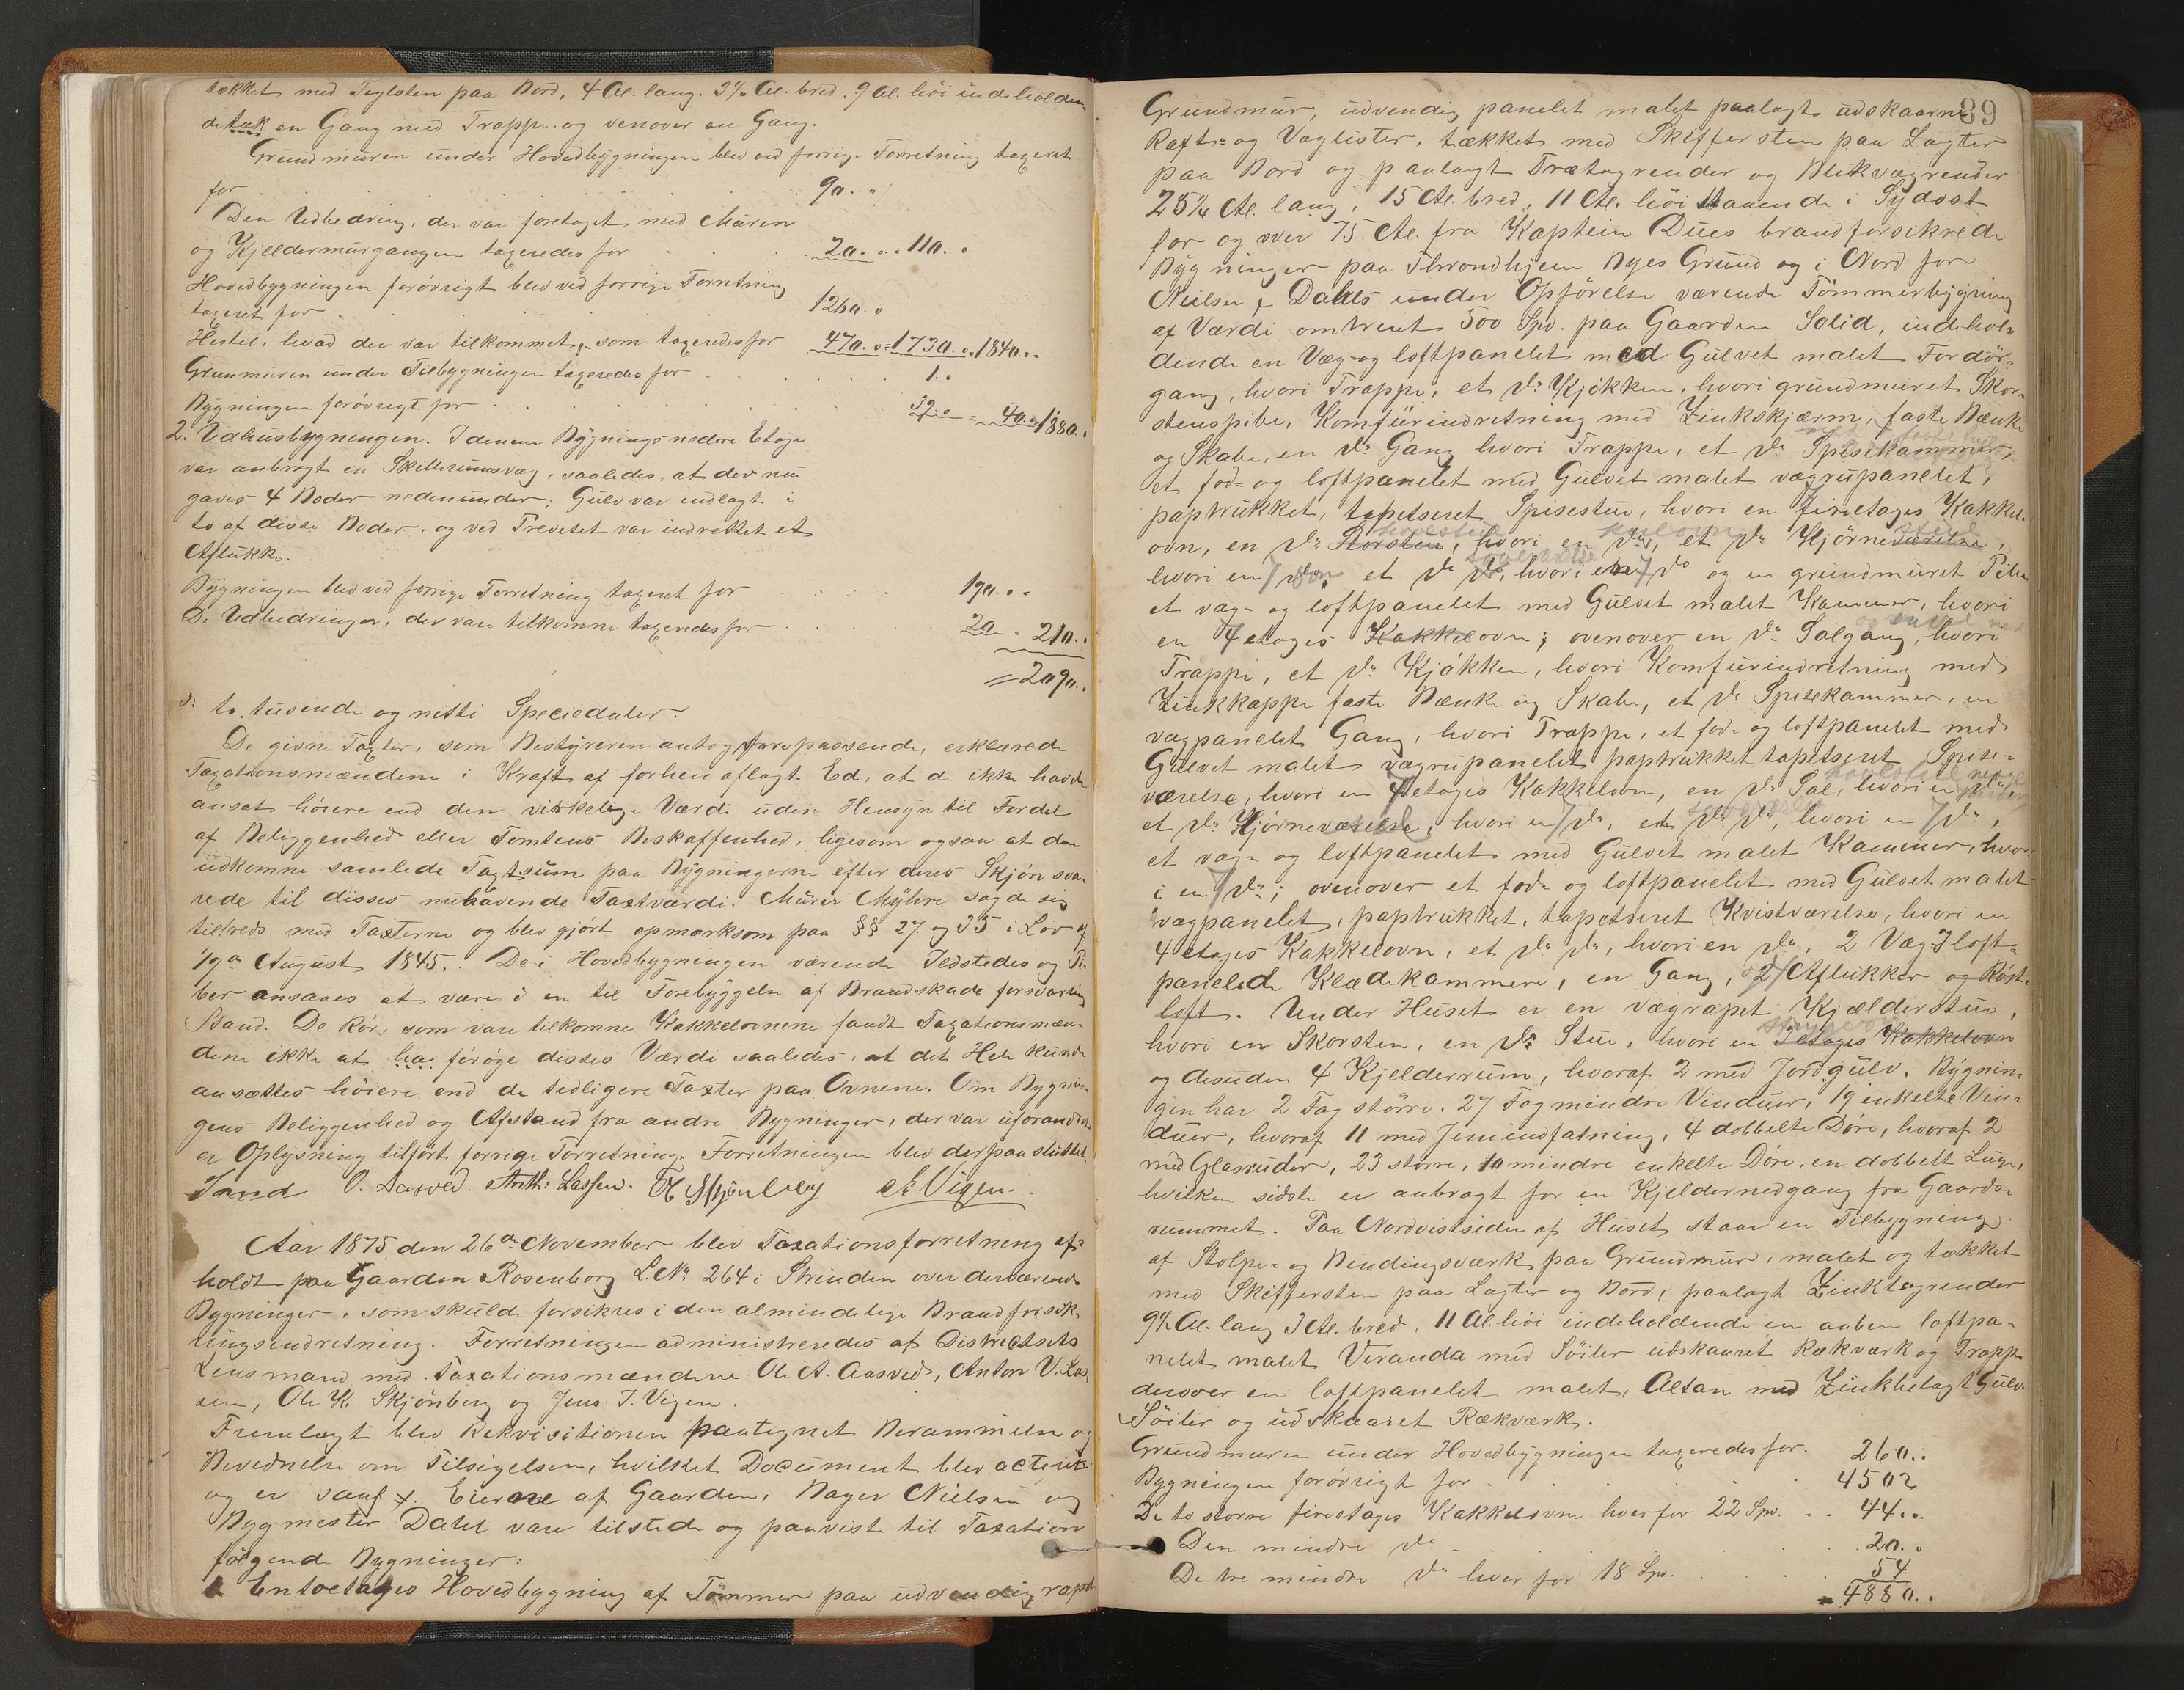 tækket med Taglsten paa Bord, 4 Al. lang. 3½ Al. bred. 9 Al. höi indeholden-
de tæk en Gang med Trappe og ovenover en Gang.
Grundmuren under Hovedbygningen blev ved forrige Forretning taxeret
for 90. "
Den Udbedring, der var foretaget med Muren
og Kjeldermurgangen taxeredes for 20. " 110. "
Hovedbygningen forövrigt blev ved forrige Forretning
taxeret for 1260. "
Hertil, hvad der var tilkommet, som taxeredes for 470. " = 1730. " 1840. "
Grunmuren under Tilbygningen taxeredes for 1. "
Bygningen forövrigt for 39. " = 40. " 1880. "
2. Udhusbygningen. I denne Bygnings nedre Etage
var anbragt en Skillerumsvæg, saaledes, at der nu
gaves 4 Boder nedenunder; Gulv var indlagt i
to af disse Boder, og ved Trevetet var indrettet et
Aflukke.
Bygningen blev ved forrige Forretning taxeret for 190. "
De Udbedringer, der vare tilkomne taxeredes for 20 " 210. "
= 2090. "
d: to tusinde og nitti Speciedaler.
De givne Taxter, som Bestyreren antog passende, erklærede
Taxationsmændene i Kraft af forhen aflagt Ed, at de ikke havde
ansat höiere end den virkelige Værdi uden Hensyn til Fordel
af Beliggenhed eller Tomtens Beskaffenhed, ligesom ogsaa at den
udkomne samlede Taxtsum paa Bygningerne efter deres Skjön sva-
rede til disses nuhavende Taxtværdi. Murer Myhre sagde sig
tilfreds med Taxterne og blev gjört opmærksom paa §§ 27 og 35 i Lov af
19de August 1845. De i Hovedbygningen værende Ildstedes og Pi-
ber ansaaes at være i en til Forebyggelse af Brandskade forsvarlig
Stand. De Rör, som vare tilkomne Kakkelovnene fandt Taxationsmæn-
dene ikke at foröge disses Værdi saaledes, at det Hele kunde
ansættes höiere end de tidligere Taxter paa Ovnene. Om Bygnin-
gens Beliggenhed og Afstand fra andre Bygninger, der var uforandret
er Oplysning tilfört forrige Forretning. Forretningen blev derpaa sluttet.
O. Aasved. Anth: Lassen. O K Skjönberg J Vigen
Aar 1875 den 26de November blev Taxationsforretning af-
holdt paa Gaarden Rosenborg L. No 264 i Strinden over derværende
Bygninger, som skulde forsikres i den almindelige Brandforsik-
ringsindretning. Forretningen administreredes af Distrectets
Lensmand med Taxationsmændene Ole A. Aasved, Anton V. Las-
sen, Ole K. Skjönberg og Jens J. Vigen.
Fremlagt blev Rekvisitionen paategnet Berammelse og
Bevidnelse om Tilsigelsen, hvilket Document blev acteret
og er saal. Eierne af Gaarden, Bager Nielsen og
Bygmester Dahl vare tilstede og paaviste til Taxation
fölgende Bygninger:
1 En toetages Hovedbygning af Tömmer paa udvendig rapet
89
Grundmur, udvendig panelet malet paalagt udskaarne
Rafts- og Vaglister, tækket med Skiffersten paa Lagter
paa Bord og paalagt Trætagrender og Blikvægrender
25¼ Al. lang, 15 Al. bred, 11 Al. höi staaende i Sydost
for og over 75 Al. fra Kaptein Dues brandforsikrede
Bygninger paa Throndhjem Byes Grund og i Nord for
Nielsen & Dahls under Opförelse værende Tömmerbygning
af Værdi omtrent 500 Spd. paa Gaarden Solid, indehol-
dende en Væg- og loftpanelet med Gulvet malet Fordör-
gang, hvori Trappe, et do Kjökken, hvori grundmuret Skor-
stenspibe, Komfürindretning med Zinkskjærm, faste Bænke
og Skabe, en do Gang hvori Trappe, et do Spisekammer,
et fod- og loftpanelet med Gulvet malet vægrupanelet,
paptrukket, tapetseret Spisestue, hvori en fireetages Kakkel-
ovn, en do Storstue, hvori en do, et do Hjörneværelse,
hvori en do, et do do, hvori en do og en grundmuret Pibe
et væg- og loftpanelet med Gulvet malet Kammer, hvori
en 4 etages Kakkelovn; ovenover en do Salgang, hvori
Trappe, et do Kjökken, hvori Komfurindretning med
Zinkkappe faste Bænke og Skabe, et do Spisekammer, en
vægpanelet Gang, hvori Trappe, et fod- og loftpanelet med
Gulvet malet vægrupanelet paptrukket tapetseret Spise-
værelse, hvori en 4 etages Kakkelovn, en do Sal, hvori en do,
et do Hjörneværelse, hvori en do, et do do, hvori en do,
et væg- og loftpanelet med Gulvet malet Kammer, hvor-
i en do; ovenover et fod- og loftpanelet med Gulvet malet
vægpanelet, paptrukket, tapetseret Kvistværelse, hvori en
4 etages Kakkelovn, et do do, hvori en do, 2 Væg- & loft-
panelede Klædekammere, en Gang, 2 Aflukker og Röst-
loft. Under Huset er en vægrapet Kjælderstue,
hvori en Skorsten, en do Stue, hvori en 3 etages Kakkelovn
og desuden 4 Kjelderrum, hvoraf 2 med Jordgulv. Bygnin-
gen har 2 Fag större, 27 Fag mindre Vinduer, 19 enkelte Vin-
duer, hvoraf 11 med Jernindfatning, 4 dobbelte Döre, hvoraf 2
med Glasruder, 23 större, 10 mindre enkelte Döre, en dobbelt Luge,
hvilken sidste er anbragt for en Kjeldernedgang fra Gaards-
rummet. Paa Nordvestsiden af Huset staar en Tilbygning
af Stolpe- og Bindingsværk paa Grundmur, malet og tækket
med Skiffersten paa Lagter og Bord, paalagt Zinktagrender
9½ Al. lang 3 Al. bred, 11 Al. höi indeholdende en aaben loftpa-
nelet malet Veranda med Söiler udskaaret Rækværk og Trappe
derover en loftpanelet malet, Altan med Zinkbelagt Gulv
Söiler og udskaaret Rækværk.
Grundmuren under Hovedbygningen taxeredes for 260. "
Bygningen forövrigt for 4502
De to større fireetages Kakkelovne hver for 22 Spd. 44. "
Den mindre do 20. "
De tre mindre do hver for 18 Spd. 54
= 4880. "